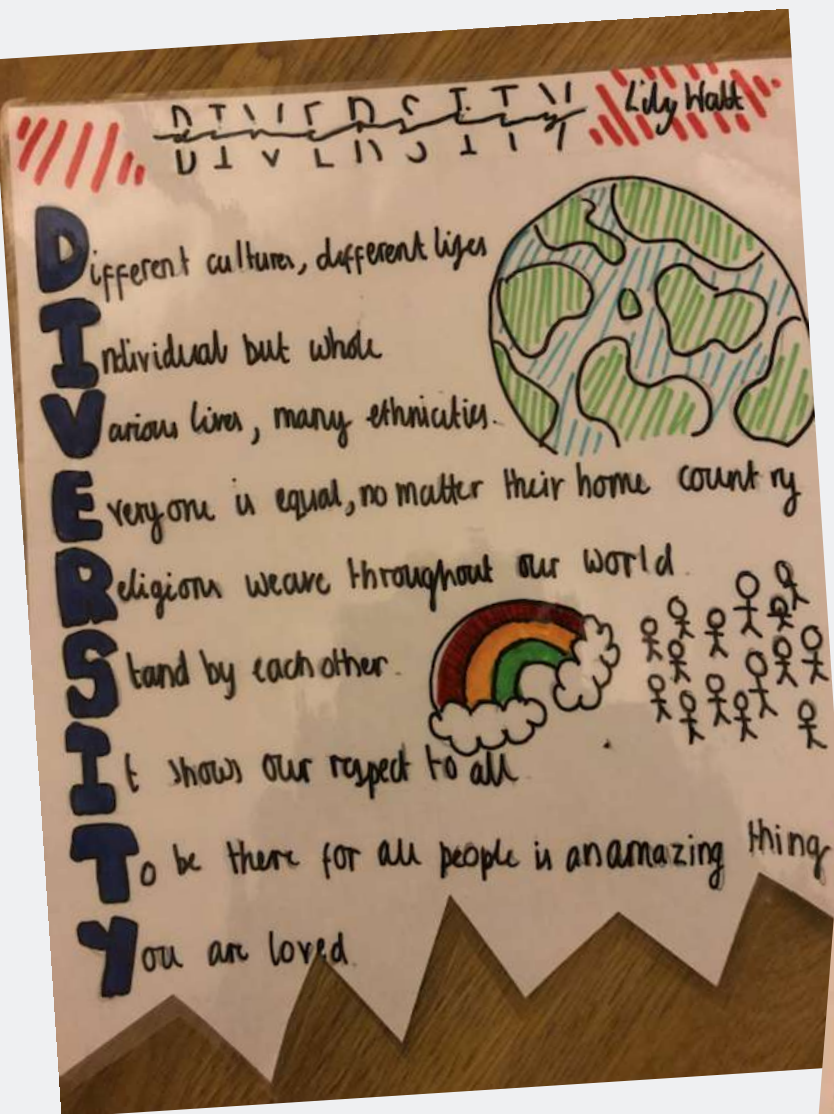 DIVERSITY
Lily Watt
Different cultures, different lifes
Individual but whole
Various lives, many ethnicities.
Everyone is equal, no matter their home country
Religions weave throughout our world.
Stand by each other.
It shows our respect to all
To be there for all people is an amazing thing
You are loved